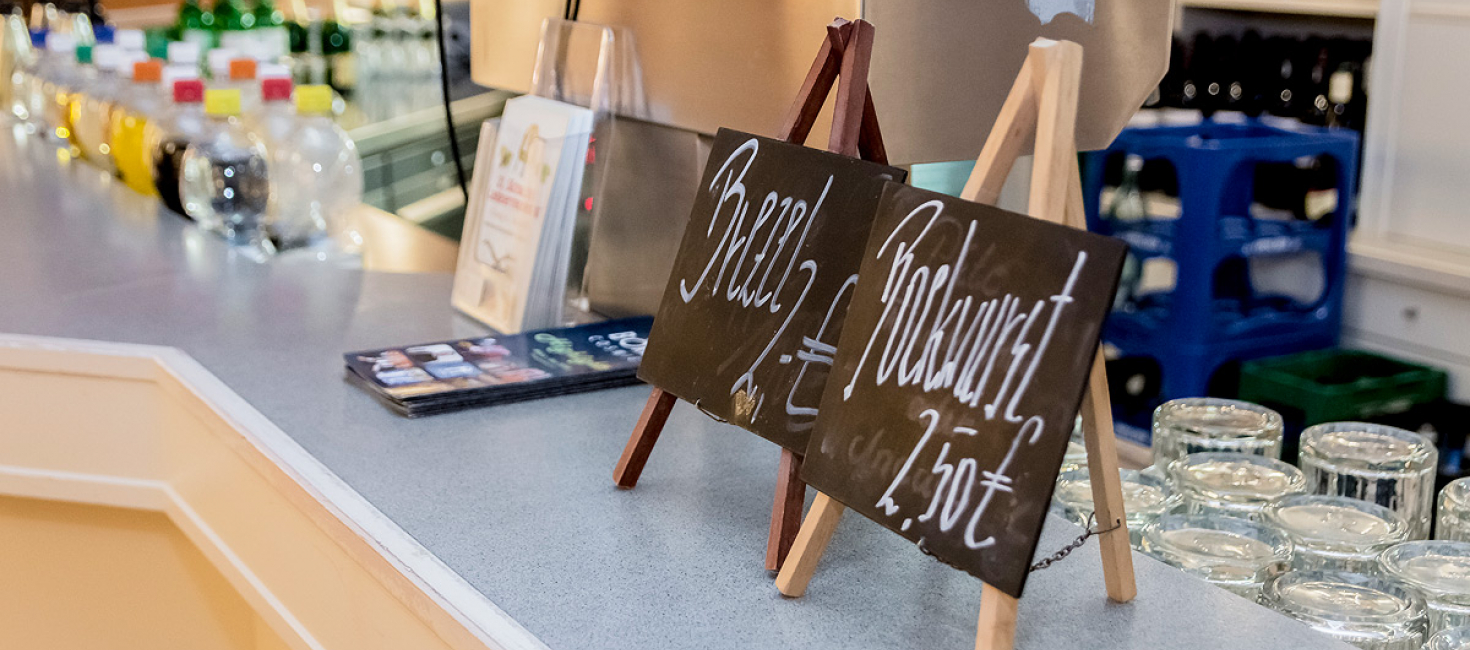 Brezel
2,- €
Bockwurst
2,50€